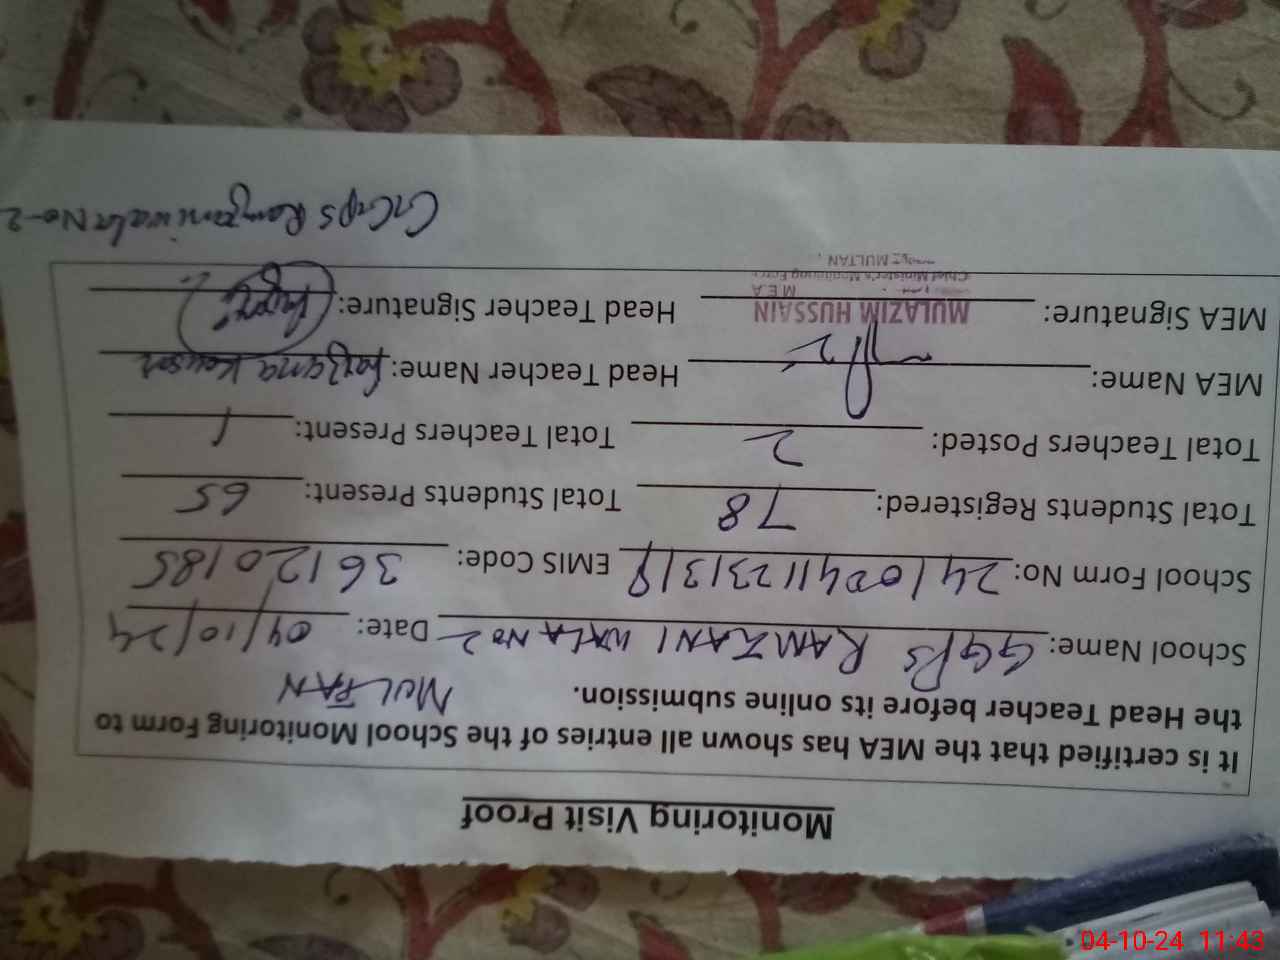 Monitoring Visit Proof
It is certified that the MEA has shown all entries of the School Monitoring Form to
the Head Teacher before its online submission. MULTAN
School Name: GGPS RAMZANI WALA No 2 Date: 04/10/24
School Form No: EMIS Code: 36120185
Total Students Registered: 78 Total Students Present: 65
Total Teachers Posted: 2 Total Teachers Present: 1
MEA Name: Head Teacher Name: farzana Kousar
MEA Signature: Head Teacher Signature:
MULAZIM HUSSAIN
M E A
Chief Minister's Monitoring Force
MULTAN.
GGPS Ramzani wala No-2
04-10-24 11:43